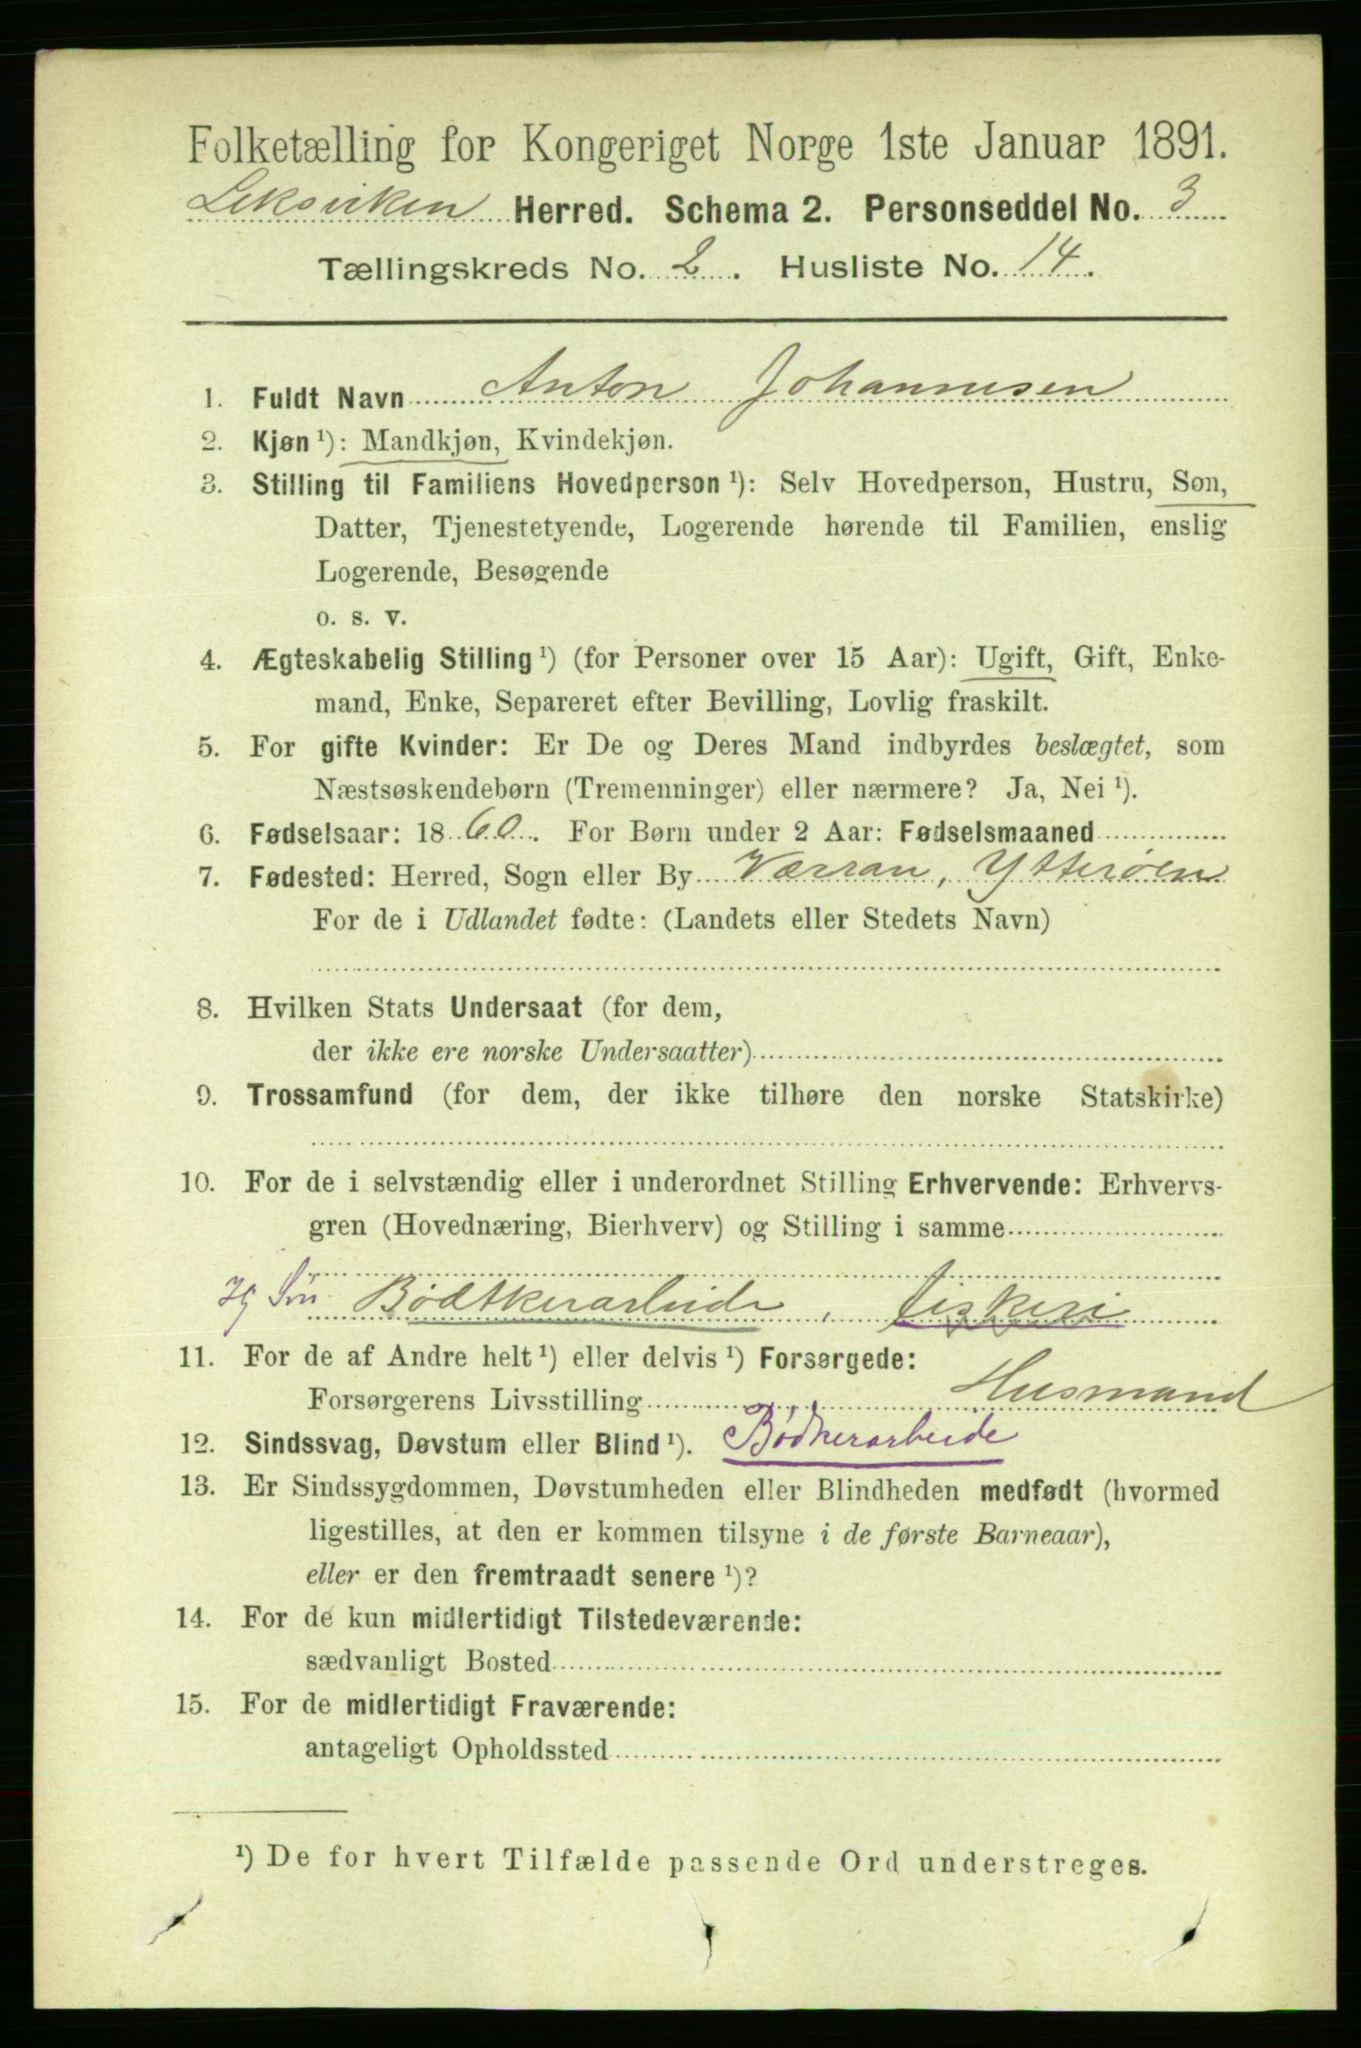 Folketælling for Kongeriget Norge 1ste Januar 1891.
Leksviken Herred. Schema 2. Personseddel No. 3
Tællingskreds No. 2. Husliste No. 14.
1. Fuldt Navn Anton Johannesen
2. Kjøn ¹): Mandkjøn, Kvindekjøn.
3. Stilling til Familiens Hovedperson ¹): Selv Hovedperson, Hustru, Søn,
Datter, Tjenestetyende, Logerende hørende til Familien, enslig
Logerende, Besøgende
o. s. v.
4. Ægteskabelig Stilling ¹) (for Personer over 15 Aar): Ugift, Gift, Enke-
mand, Enke, Separeret efter Bevilling, Lovlig fraskilt.
5. For gifte Kvinder: Er De og Deres Mand indbyrdes beslægtet, som
Næstsøskendebørn (Tremenninger) eller nærmere? Ja, Nei ¹).
6. Fødselsaar: 1860. For Børn under 2 Aar: Fødselsmaaned
7. Fødested: Herred, Sogn eller By Værran, Ytterøen
For de i Udlandet fødte: (Landets eller Stedets Navn)
8. Hvilken Stats Undersaat (for dem,
der ikke ere norske Undersaatter)
9. Trossamfund (for dem, der ikke tilhøre den norske Statskirke)
10. For de i selvstændig eller i underordnet Stilling Erhvervende: Erhvervs-
gren (Hovednæring, Bierhverv) og Stilling i samme
Bødtkerarbeide, fiskeri
11. For de af Andre helt ¹) eller delvis ¹) Forsørgede:
Forsørgerens Livsstilling Husmand
12. Sindssvag, Døvstum eller Blind ¹). Bødkerarbeide
13. Er Sindssygdommen, Døvstumheden eller Blindheden medfødt (hvormed
ligestilles, at den er kommen tilsyne i de første Barneaar),
eller er den fremtraadt senere ¹)?
14. For de kun midlertidigt Tilstedeværende:
sædvanligt Bosted
15. For de midlertidigt Fraværende:
antageligt Opholdssted
¹) De for hvert Tilfælde passende Ord understreges.